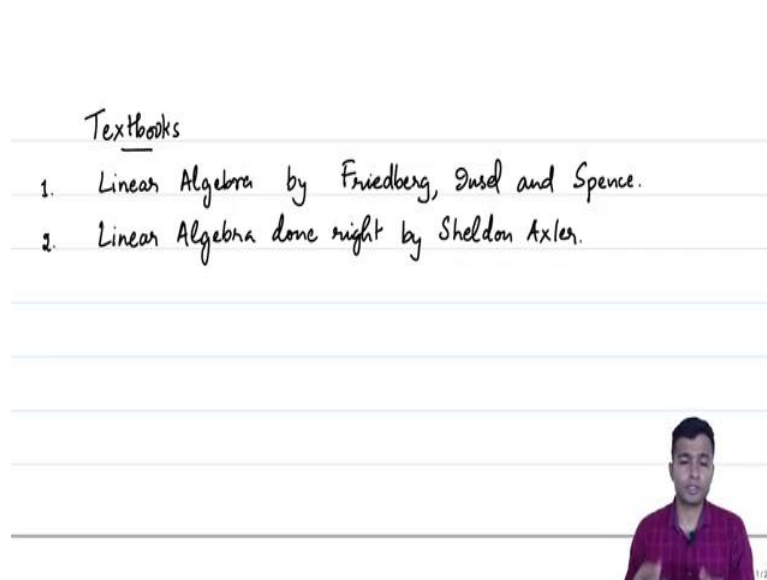 Textbooks
1. Linear Algebra by Friedberg, Insel and Spence.
2. Linear Algebra done right by Sheldon Axler.